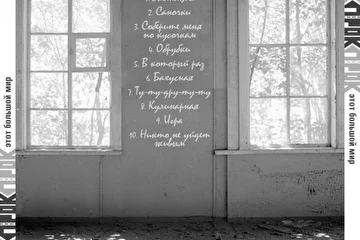 2. Саночки
3. Соберите меня
по кусочкам
4. Обрубки
5. В который раз
6. Вакусная
7. Ту-ту-дру-ту-ту
8. Кулинарная
9. Игра
10. Никто не уйдет
живым
этот большой мир
этот большой мир